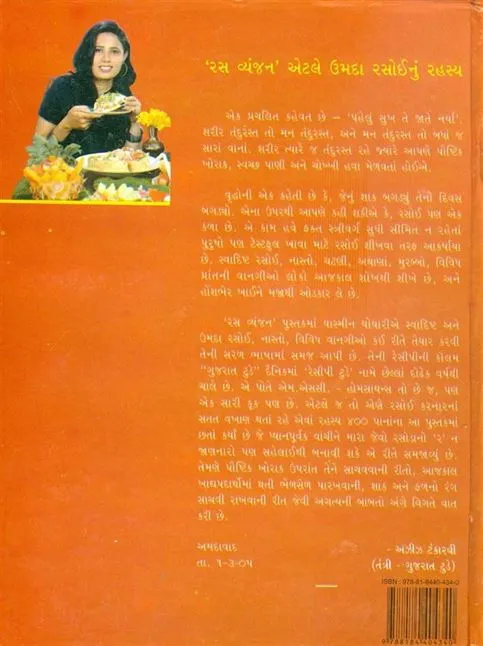 ‘રસ વ્યંજન’ એટલે ઉમદા રસોઈનું રહસ્ય
એક પ્રચલિત કહેવત છે – ‘પહેલું સુખ તે જાતે નર્યા’.
શરીર તંદુરસ્ત તો મન તંદુરસ્ત, અને મન તંદુરસ્ત તો બધાં જ
સારાં વાનાં. શરીર ત્યારે જ તંદુરસ્ત રહે જ્યારે આપણે પૌષ્ટિક
ખોરાક, સ્વચ્છ પાણી અને ચોખ્ખી હવા મેળવતાં હોઈએ.
વૃદ્ધોની એક કહેતી છે કે, જેનું શાક બગડ્યું તેનો દિવસ
બગડ્યો. એના ઉપરથી આપણે કહી શકીએ કે, રસોઈ પણ એક
કળા છે. એ કામ હવે ફક્ત સ્ત્રીવર્ગ સુધી સીમિત ન રહેતાં
પુરુષો પણ ટેસ્ટફુલ ખાવા માટે રસોઈ શીખવા તરફ આકર્ષાયા
છે. સ્વાદિષ્ટ રસોઈ, નાસ્તો, ચટણી, અથાણાં, મુરબ્બો, વિવિધ
પ્રાંતની વાનગીઓ લોકો આજકાલ શોખથી શીખે છે, અને
હોંશભેર ખાઈને મજાથી ઓડકાર લે છે.
‘રસ વ્યંજન’ પુસ્તકમાં યાસ્મીન ચોથારીએ સ્વાદિષ્ટ અને
ઉમદા રસોઈ, નાસ્તો, વિવિધ વાનગીઓ કઈ રીતે તૈયાર કરવી
તેની સરળ ભાષામાં સમજ આપી છે. તેની રેસીપીની કૉલમ
“ગુજરાત ટુડે” દૈનિકમાં ‘રેસીપી ટુડે’ નામે છેલ્લાં દોઢેક વર્ષથી
ચાલે છે. એ પોતે એમ.એસસી. – હોમસાયન્સ તો છે જ, પણ
એક સારી કૂક પણ છે. એટલે જ તો એણે રસોઈ કરનારનાં
સતત વખાણ થતાં રહે એવાં રહસ્ય ૪૦૦ પાનાંના આ પુસ્તકમાં
છતાં કર્યાં છે જે ધ્યાનપૂર્વક વાંચીને મારા જેવો રસોડાનો ‘ર’ ન
જાણનારો પણ સહેલાઈથી બનાવી શકે એ રીતે સમજાવ્યું છે.
તેમણે પૌષ્ટિક ખોરાક ઉપરાંત તેને સાચવવાની રીતો, આજકાલ
ખાદ્યપદાર્થોમાં થતી ભેળસેળ પારખવાની, શાક અને ફળનો રંગ
સાચવી રાખવાની રીત જેવી અગત્યની બાબતો અંગે વિગતે વાત
કરી છે.
અમદાવાદ – અઝીઝ ટંકારવી
તા. ૧-૩-૦૫ (તંત્રી – ગુજરાત ટુડે)
ISBN : 978-81-8440-434-0
9788184404340